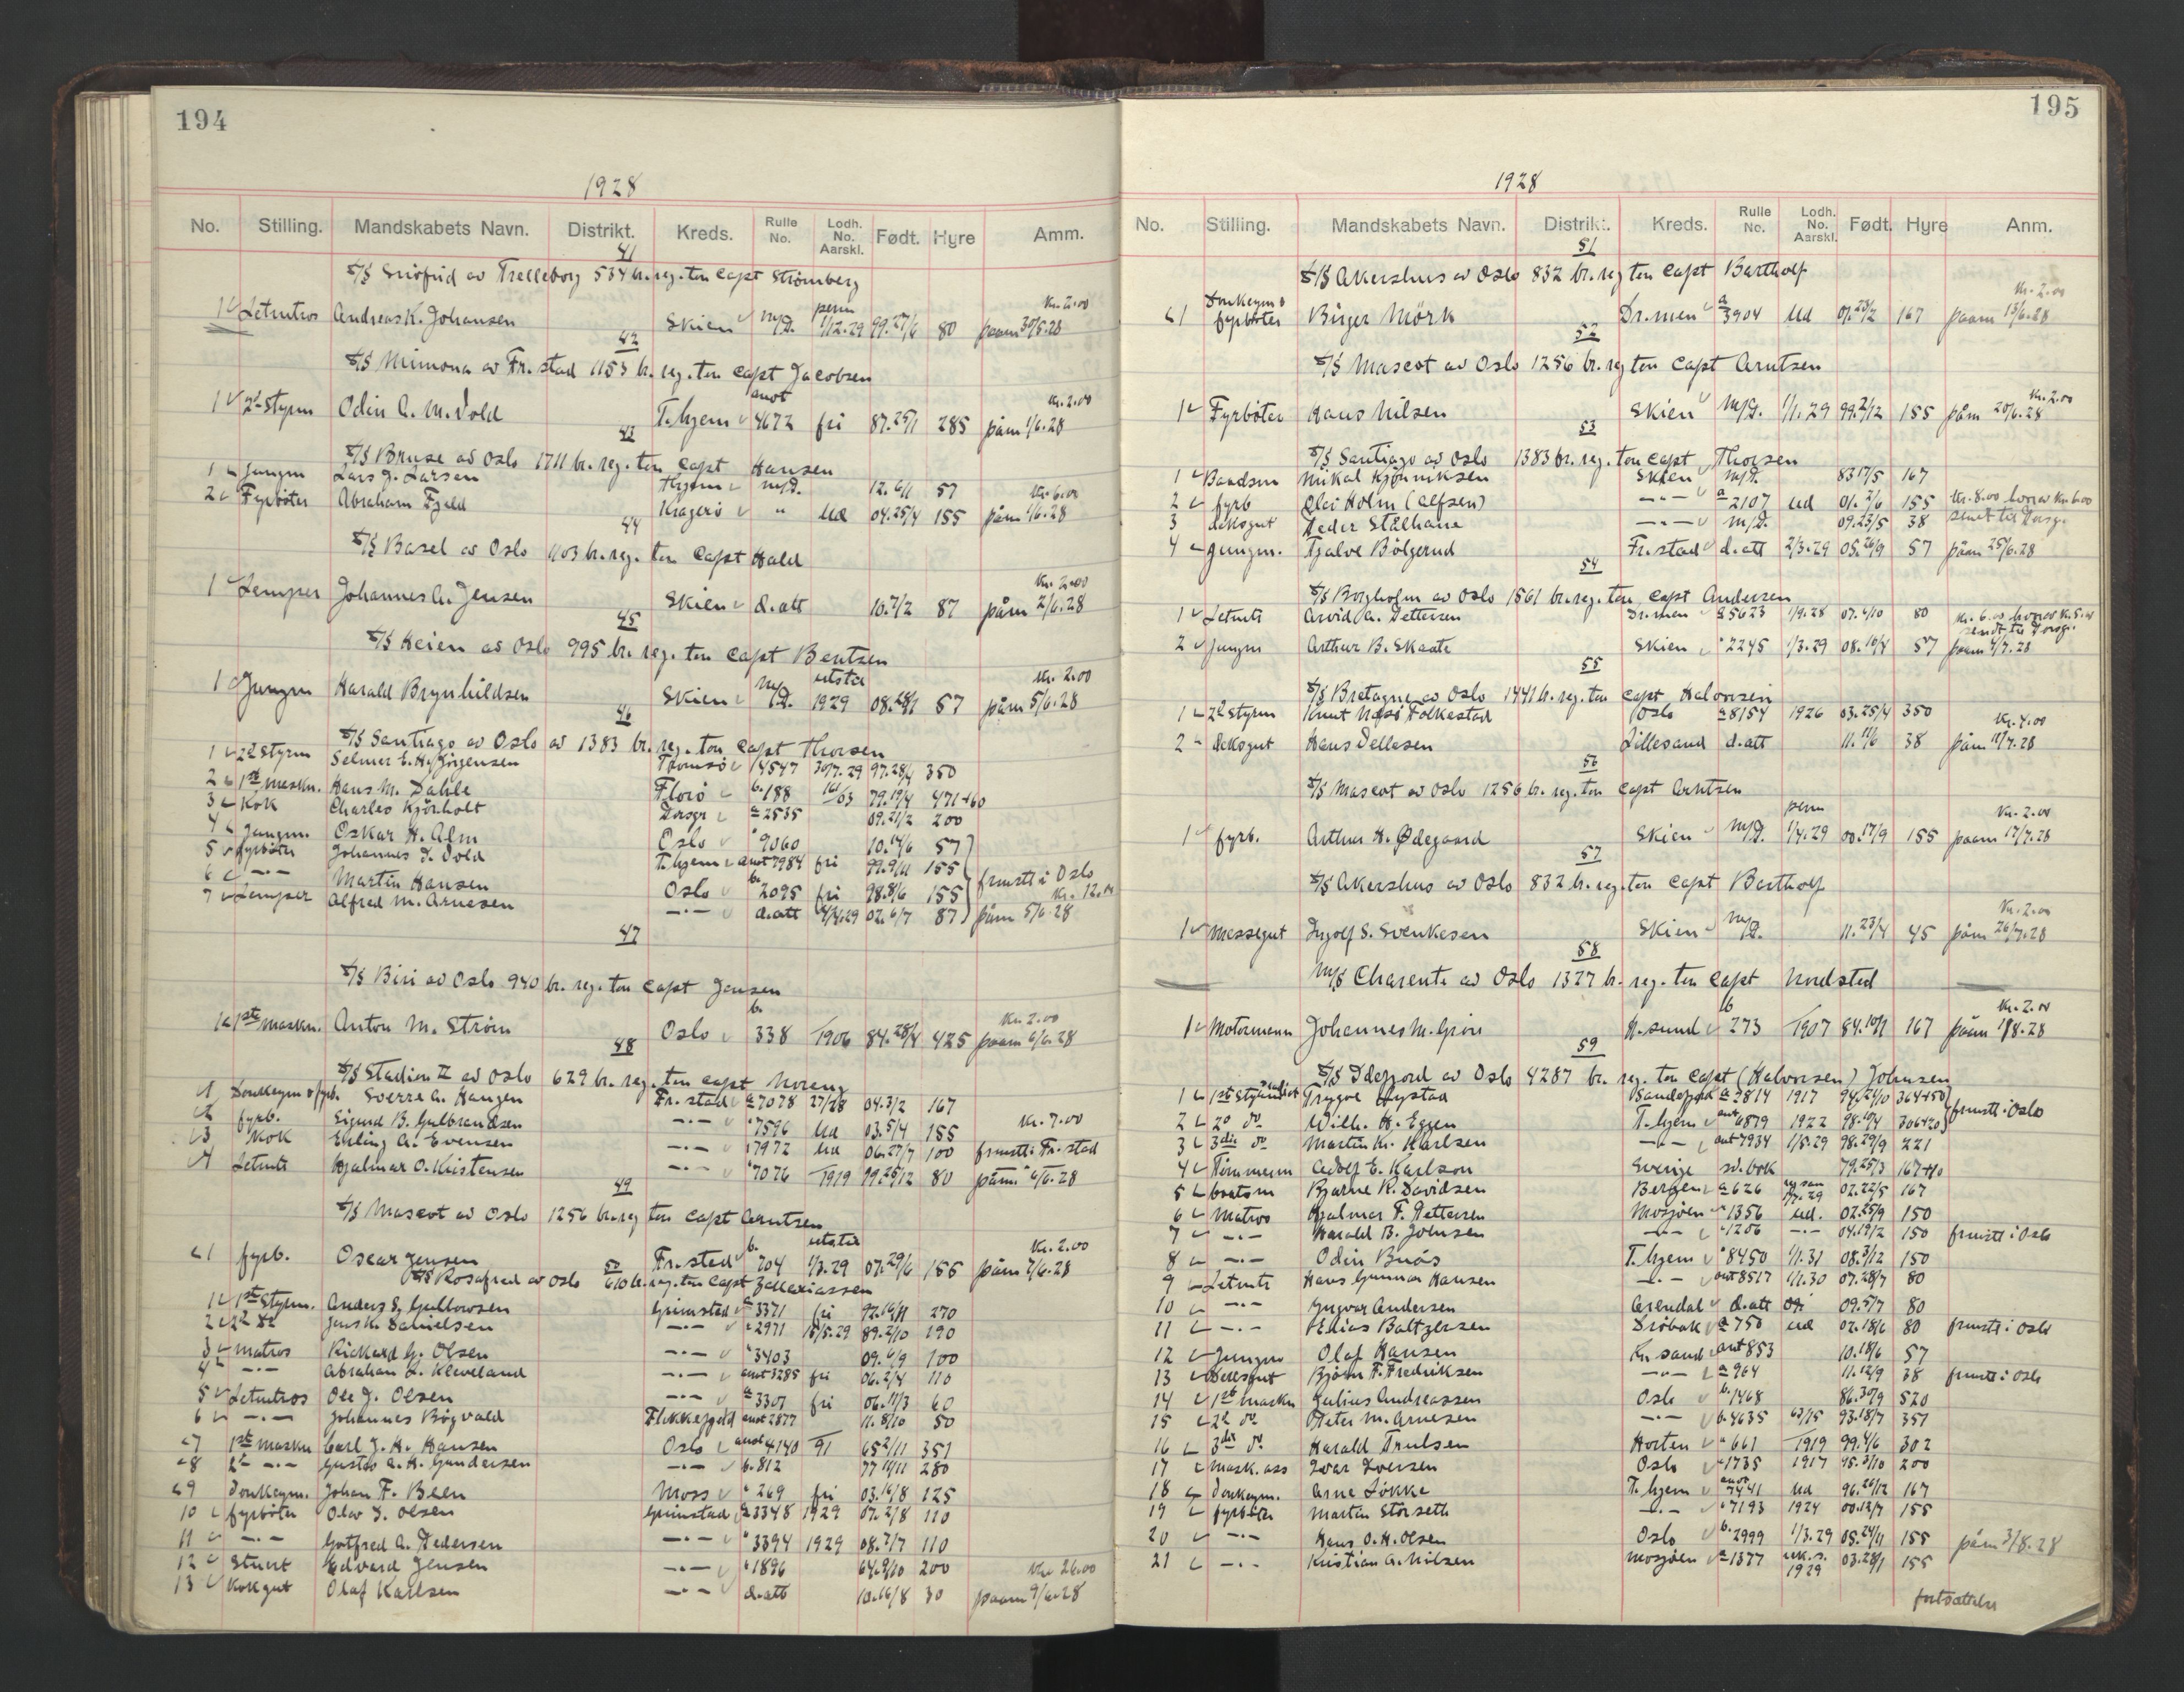 194
1928
No. Stilling. Mandskabets Navn. Distrikt. Kreds. Rulle No. Lodh. No. Aarskl. Født. Hyre Amm.
41
S/S av Trelleborg 534 br. reg. ton Capt Strömberg
1 Letmtros Andreas K. Johansen Skien m/I. perm 1/12.29 99.27/6 80 paam 30/5.28 Kr. 2.00
42
S/S Mimona av Fr.stad 1153 br. reg. ton Capt Jacobsen
1 2d styrm Odin A. M. Vold T.hjem anot 4672 fri 87.25/1 285 påm 1/6.28 Kr. 2.00
43
S/S Bruse av Oslo 1711 br. reg. ton Capt Hansen
1 jungm Lars J. Larsen T.hjem m/I. 12.6/11 57
2 Fyrböter Abraham Fjeld Kragerö " Ud 04.25/4 155 påm 1/6.28 Kr. 6.00
44
S/S Basel av Oslo 1103 br. reg. ton Capt Hald
1 Lemper Johannes A. Jensen Skien d.att 10.7/2 87 påm 2/6.28 Kr. 2.00
45
S/S Heien av Oslo 995 br. reg. ton Capt Bentsen
1 Jungm Harald Brynhildsen Skien m/I. utsta 1929 08.28/1 57 påm 5/6.28 Kr. 2.00
46
S/S Santiago av Oslo av 1383 br. reg. ton Capt Thorsen
1 2d styrm Selmer E. Hj. Jörgensen Tromsö 14547 30/7.29 97.28/4 350
2 1ste maskn. Hans M. Dahle Florö b. 188 161/03 79.19/4 471+60
3 Kok Charles Kjönholt Porsgr a 2535 09.21/2 200
4 jungm. Oskar H. Alm Oslo " 9060 10.14/6 57
5 fyrböter Johannes I. Vold T.hjem anot 7984 fri 99.9/11 155
6 —"— Martin Hansen Oslo b. 2095 fri 98.8/6 155 frmstt i Oslo
7 Lemper Alfred M. Arnesen —"— d.att 4/4.29 02.6/7 87 påm 5/6.28 Kr. 12.00
47
S/S Biri av Oslo 940 br. reg. ton Capt Jensen
1 1ste maskn. Anton M. Ström Oslo b. 338 1906 84.28/4 425 paam 6/6.28 Kr. 2.00
48
S/S Stadion II av Oslo 629 br. reg. ton Capt Noreng
1 Donkeym & fyrb. Sverre A. Haugen Fr.stad a 7078 27/28 04.3/2 167
2 fyrb. Sigurd B. Gulbrandsen —"— " 7596 Ud 03.5/4 155 Kr. 7.00
3 Kok Erling A. Evensen —"— " 7972 Ud 06.27/7 100 frmstt i Fr.stad
4 Letmts Hjalmar O. Kristensen —"— " 7076 1919 99.25/12 80 påm 6/6.28
49
S/S Mascot av Oslo 1256 br. reg ton Capt Arntsen
1 fyrb. Oscar Jensen Fr.stad b. 704 utsta 1/3.29 07.29/6 155 påm 7/6.28 Kr. 2.00
50
S/S Rosafred av Oslo 610 br. reg. ton Capt Zakariassen
1 1ste Styrm. Anders S. Gullowsen Grimstad a 3371 fri 92.16/11 270
2 2d do Jens K. Danielsen —"— " 2971 15/5.29 89.2/10 190
3 matros Rickard G. Olsen —"— " 3403 09.6/9 100
4 —"— Abraham L. Kleveland —"— anot 3285 fri 06.2/4 110
5 Letmtros Ole J. Olsen —"— a 3307 fri 06.11/3 60
6 —"— Johannes Bögvald Flekkefjord anot 2877 11.8/10 50
7 1ste maskn Carl J. H. Hansen Oslo anot 4140 91 65.2/11 351
8 2d —"— Gustav A. H. Gundersen —"— b. 812 77.10/11 280
9 Donkeym. Johan F. Been Moss " 269 fri 03.16/8 125
10 fyrböter Olav S. Olsen Grimstad a 3348 1929 07.2/8 110
11 —"— Gotfred A. Pedersen —"— " 3394 1929 08.7/7 110
12 Stuert Edvard Jensen —"— " 1896 64.9/10 200 Kr. 26.00
13 Kokgut Olaf Karlsen —"— d.att 10.16/8 30 paam 9/6.28
195
1928
No. Stilling. Mandskabets Navn. Distrikt. Kreds. Rulle No. Lodh. No. Aarskl. Født. Hyre Anm.
51
S/S Akershus av Oslo 832 br. reg ton Capt Bartholf
1 Donkeym & fyrböter Birger Mörk Dr.men a 3904 Ud 07.23/2 167 paam 13/6.28 Kr. 2.00
52
S/S Mascot av Oslo 1256 br. reg ton Capt Arntsen
1 Fyrböter Hans Nilsen Skien m/I. 1/1.29 99.2/12 155 påm 20/6.28 Kr. 2.00
53
S/S Santiago av Oslo 1383 br. reg. ton Capt Thorsen
1 Baadsm Mikal Kjönniksen Skien m/I. 83.17/5 167
2 fyrb Olai Holm (Alfsen) —"— a 2107 Ud 01.2/6 155 Kr. 8.00 horav Kr. 6.00
3 deksgut Peder Stålhane —"— m/I. 09.23/5 38 sendt til Porsg.
4 jungm. Tjalve Bölgerud Fr.stad d.att 2/3.29 05.26/9 57 påm 25/6.28
54
S/S Borgholm av Oslo 1561 br. reg. ton Capt Andersen
1 Letmts Arvid A. Pettersen Dr.men a 5623 1/9.28 07.4/10 80 Kr. 6.00 horav Kr. 5.00 sendt til Porsg.
2 jungm Arthur B. Skaate Skien " 2245 1/3.29 08.10/4 57 paam 4/7.28
55
S/S Bretagne av Oslo 1441 br. reg. ton Capt Halvorsen
1 2d styrm Knut Næsö Folkestad Oslo a 8154 1926 03.25/4 350
2 deksgut Hans Pellesen Lillesand d.att 11.11/6 38 påm 11/7.28 Kr. 4.00
56
S/S Mascot av Oslo 1256 br. reg. ton Capt Arntsen
1 fyrb. Arthur H. Ødegaard Skien m/I. perm 1/4.29 00.17/9 155 paam 17/7.28 Kr. 2.00
57
S/S Akershus av Oslo 832 br. reg. ton Capt Bartholf
1 messegut Ingolf S. Svenkesen Skien m/I. 11.23/4 45 påm 26/7.28 Kr. 2.00
58
M/S Charente av Oslo 1327 br. reg. ton Capt Nordsted
1 Motormann Johannes M. Grön K.sund b 273 1907 84.10/11 167 påm 1/8.28 Kr. 2.00
59
S/S Idefjord av Oslo 4287 br. reg. ton Capt (Halvorsen) Johnsen
1 1ste Styrm Trygve Lystad Sandefjord a 2814 1917 94.21/10 364+50
2 2d do Wilh. H. Eggen T.hjem anot 6879 1922 98.10/4 306+20 frmstt i Oslo
3 3die do Martin K. Karlsen —"— anot 7934 1/5.29 98.29/9 221
4 Tömmerm Adolf E. Karlson Sverige sv. bok 79.25/3 167+10
5 baatsm Bjarne R. Davidsen Bergen a 626 02.22/5 167
6 Matros Hjalmar F. Pettersen Mosjöen " 1356 ud. 02.25/9 150
7 —"— Harald B. Johnsen —"— " 1206 —"— 04.19/2 150 frmstt i Oslo
8 —"— Odin Buås T.hjem " 8450 1/1.31 08.3/12 150
9 Letmts Hans Gunnar Hansen —"— anot 8517 1/1.30 07.28/7 80
10 —"— Yngvar Andersen Arendal d.att 09.5/7 80
11 —"— Elias Baltzersen Dröbak a 750 Ud 07.18/6 80 frmstt i Oslo
12 Jungm Olaf Hansen Kr.sand anot 853 10.18/6 57
13 Deksgut Björn F. Fredriksen —"— a 964 11.12/9 38 frmstt i Oslo
14 1ste maskn Julius Andreassen Oslo b. 1468 86.30/9 520
15 2d do Peter M. Arnesen —"— b. 4635 63/15 93.18/7 351
16 3die do Harald Trulsen Horten " 661 1919 99.4/6 302
17 Mask. ass Ivar Iversen Oslo " 1735 1917 95.3/10 200
18 Donkeym. Arne Løkke T.hjem anot 7441 Ud 96.26/12 167
19 fyrböter Martin Störseth —"— " 7193 1924 00.13/7 155
20 —"— Hans O. H. Olsen Oslo b. 2999 1/3.29 05.24/11 155 påm 3/8.28
21 —"— Kristian A. Nilsen Mosjöen a 1377 1929 03.28/1 155
fortsættelse